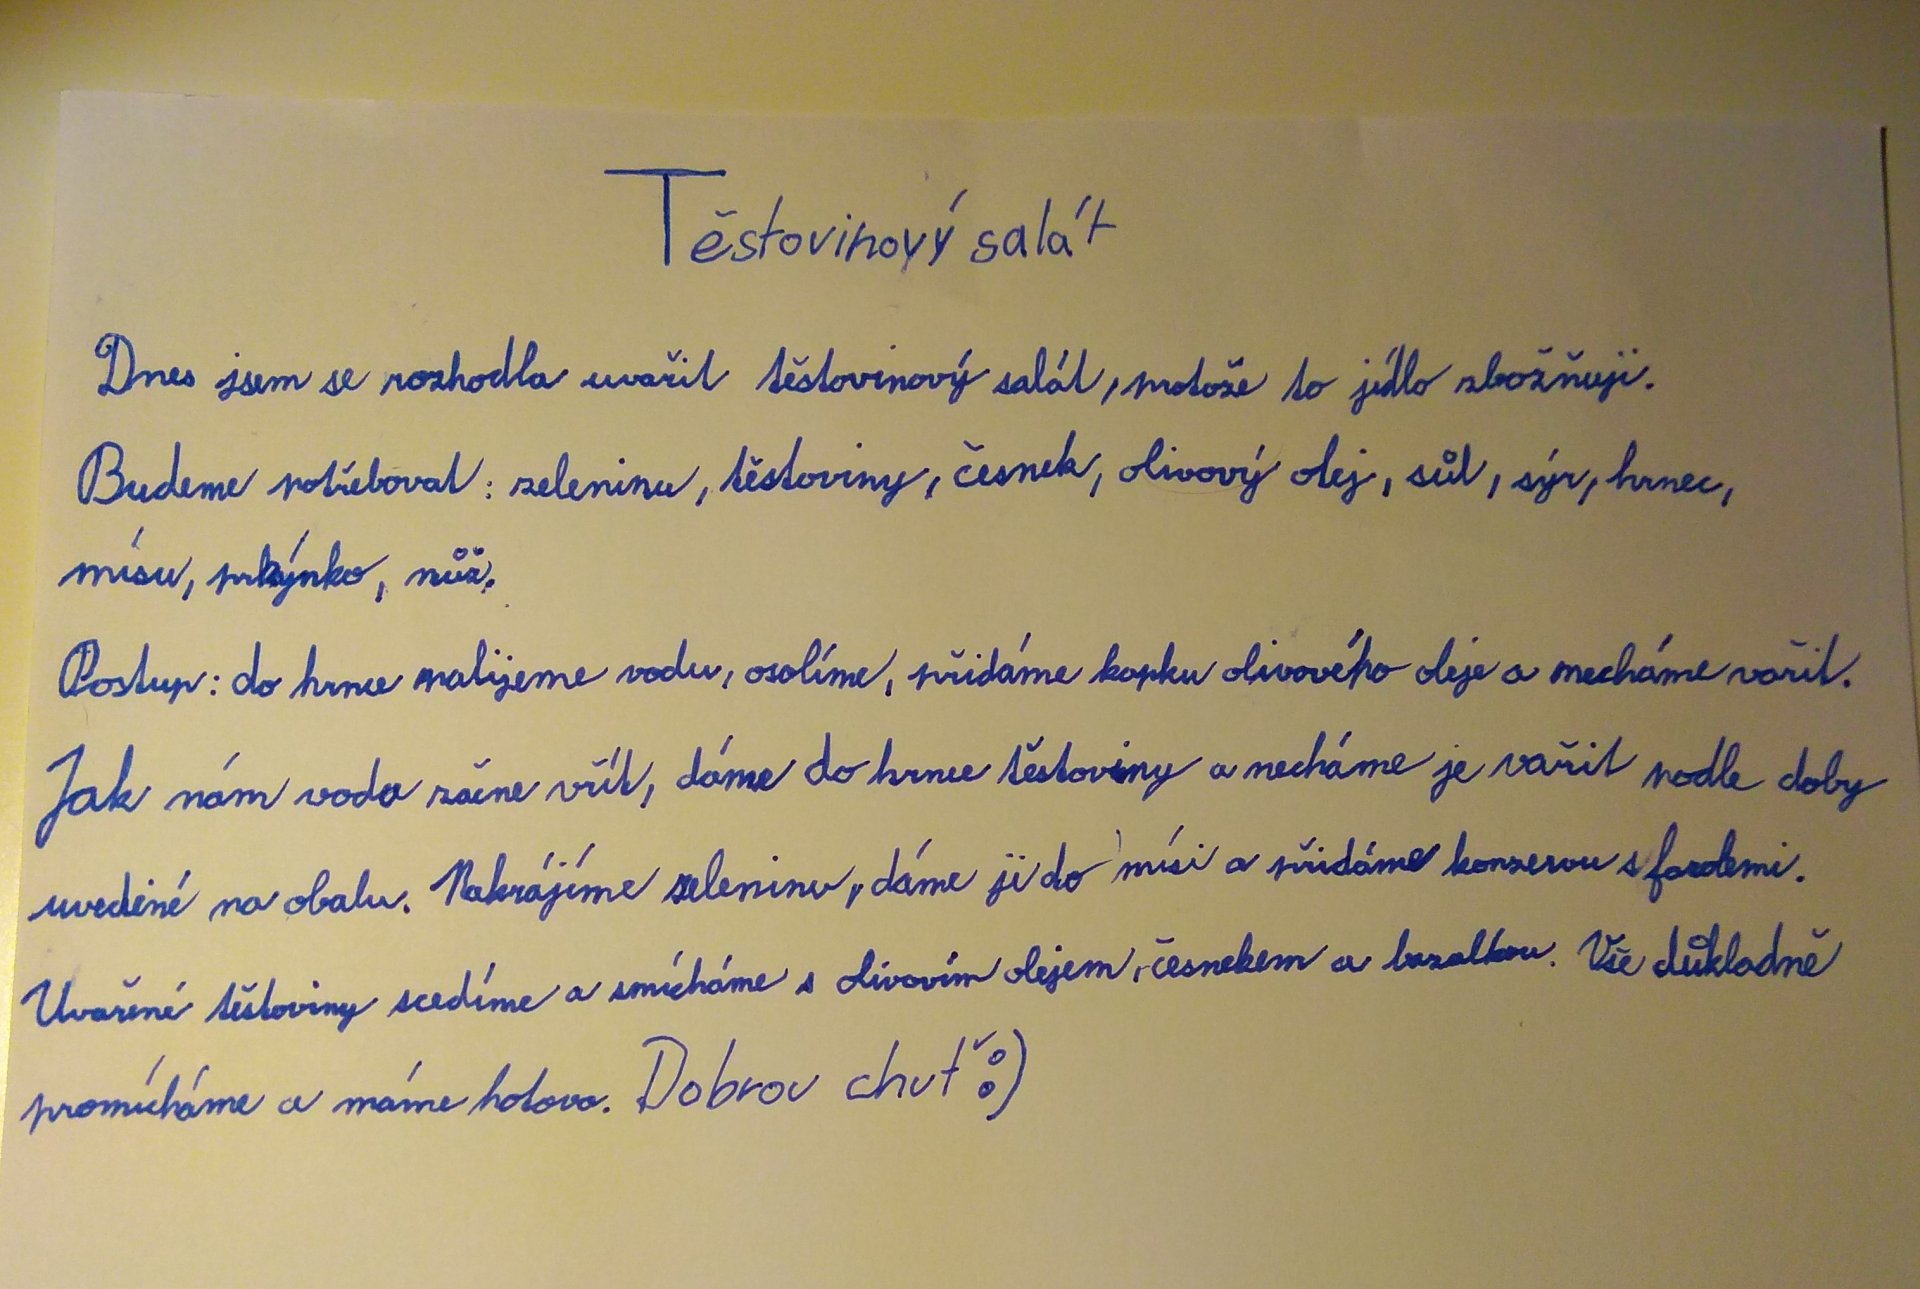 Těstovinový salát
Dnes jsem se rozhodla uvařit těstovinový salát, protože to jídlo zbožňuji.
Budeme potřebovat: zeleninu, těstoviny, česnek, olivový olej, sůl, sýr, hrnec,
mísu, prkýnko, nůž.
Postup: do hrnce nalijeme vodu, osolíme, přidáme kapku olivového oleje a necháme vařit.
Jak nám voda začne vřít, dáme do hrnce těstoviny a necháme je vařit podle doby
uvedené na obalu. Nakrájíme zeleninu, dáme ji do mísi a přidáme konzervu s fazolemi.
Uvařené těstoviny scedíme a smícháme s olivovím olejem, česnekem a bazalkou. Vše důkladně
promícháme a máme hotovo. Dobrou chuť :)